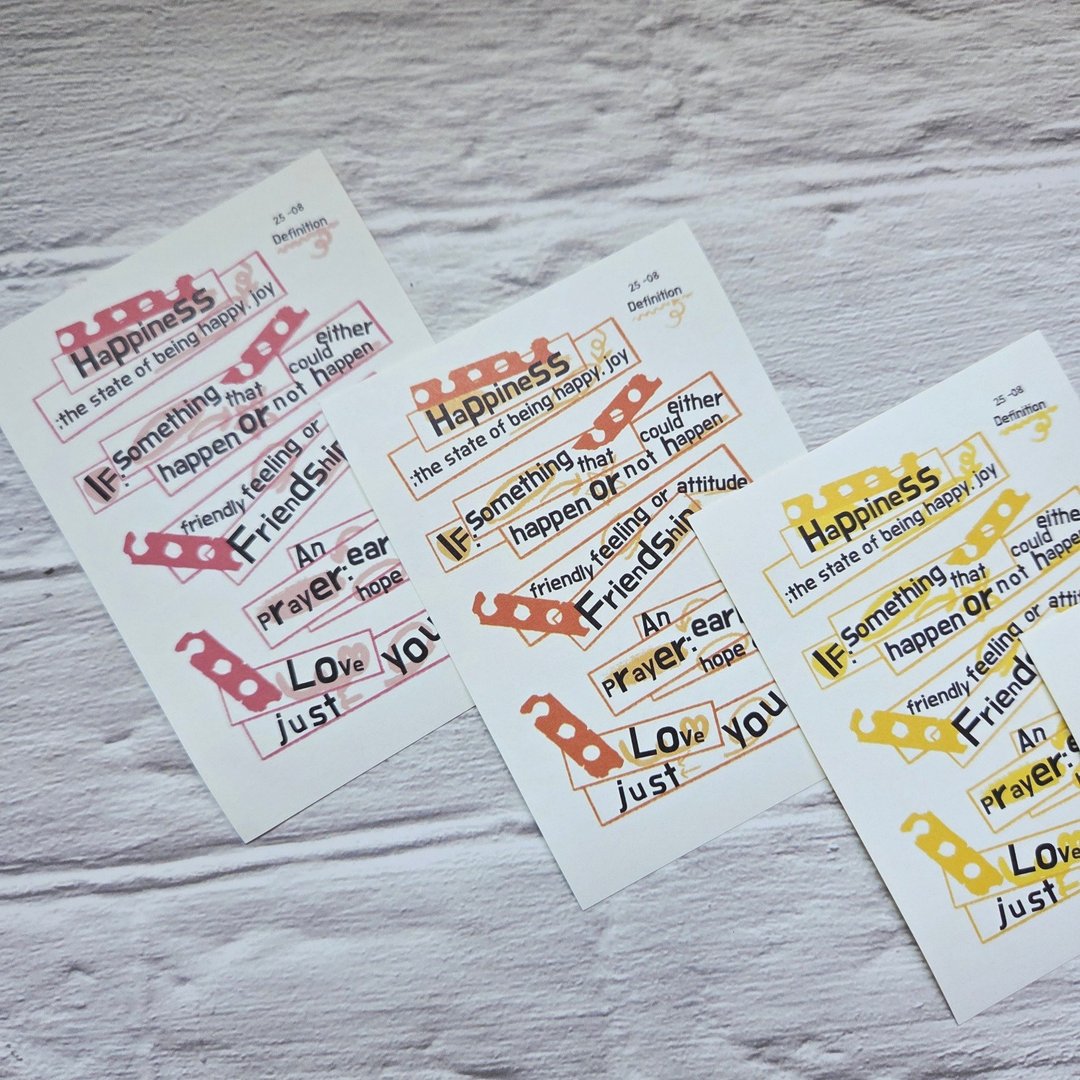 25 -08
Definition
Happiness
:the state of being happy. joy
IF: Something that could either
happen or not happen
friendly feeling or
Friendship
An
Prayer: ear
hope
Love you
just
25 -08
Definition
Happiness
:the state of being happy. joy
IF: Something that could either
happen or not happen
friendly feeling or attitude
Friendship
An
Prayer: ear
hope
Love you
just
25 -08
Definition
Happiness
:the state of being happy. joy
IF: Something that could either
happen or not happe
friendly feeling or atti
Friends
An
Prayer: e
Love
just